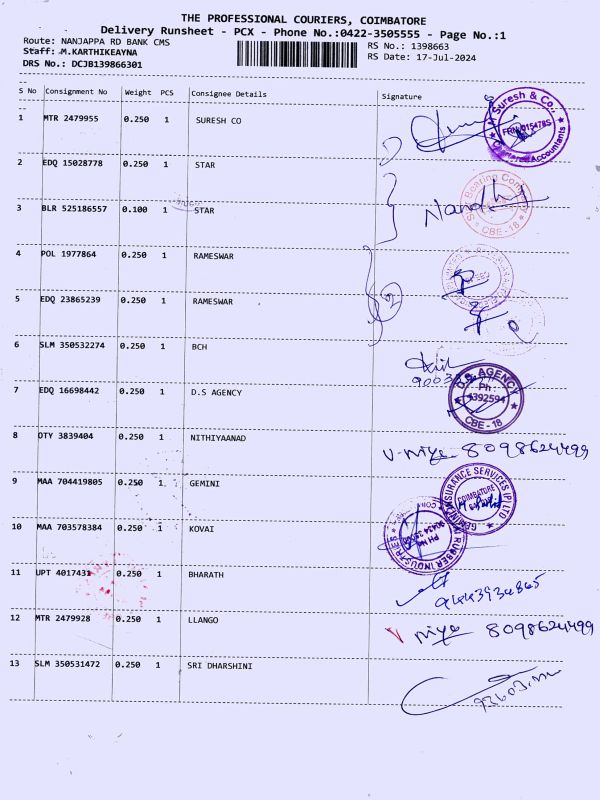 THE PROFESSIONAL COURIERS, COIMBATORE
Delivery Runsheet - PCX - Phone No.:0422-3505555 - Page No.:1
Route: NANJAPPA RD BANK CMS
RS No.: 1398663
Staff: M.KARTHIKEAYNA
RS Date: 17-Jul-2024
DRS No.: DCJB139866301
S No Consignment No Weight PCS Consignee Details Signature
1 MTR 2479955 0.250 1 SURESH CO
Suresh & Co.,
Chartered Accountants
2 EDQ 15028778 0.250 1 STAR
3 BLR 525186557 0.100 1 STAR
CBE-18
4 POL 1977864 0.250 1 RAMESWAR
5 EDQ 23865239 0.250 1 RAMESWAR
6 SLM 350532274 0.250 1 BCH
7 EDQ 16698442 0.250 1 D.S AGENCY
D.S. AGENCY
Ph:
4392594
CBE-18
8 OTY 3839404 0.250 1 NITHIYAANAD
8098624499
9 MAA 704419805 0.250 1 GEMINI
GEMINI INSURANCE SERVICES (P) LTD
COIMBATORE
10 MAA 703578384 0.250 1 KOVAI
RUBBER INDUSTRIES
11 UPT 4017431 0.250 1 BHARATH
12 MTR 2479928 0.250 1 LLANGO
8098624499
13 SLM 350531472 0.250 1 SRI DHARSHINI